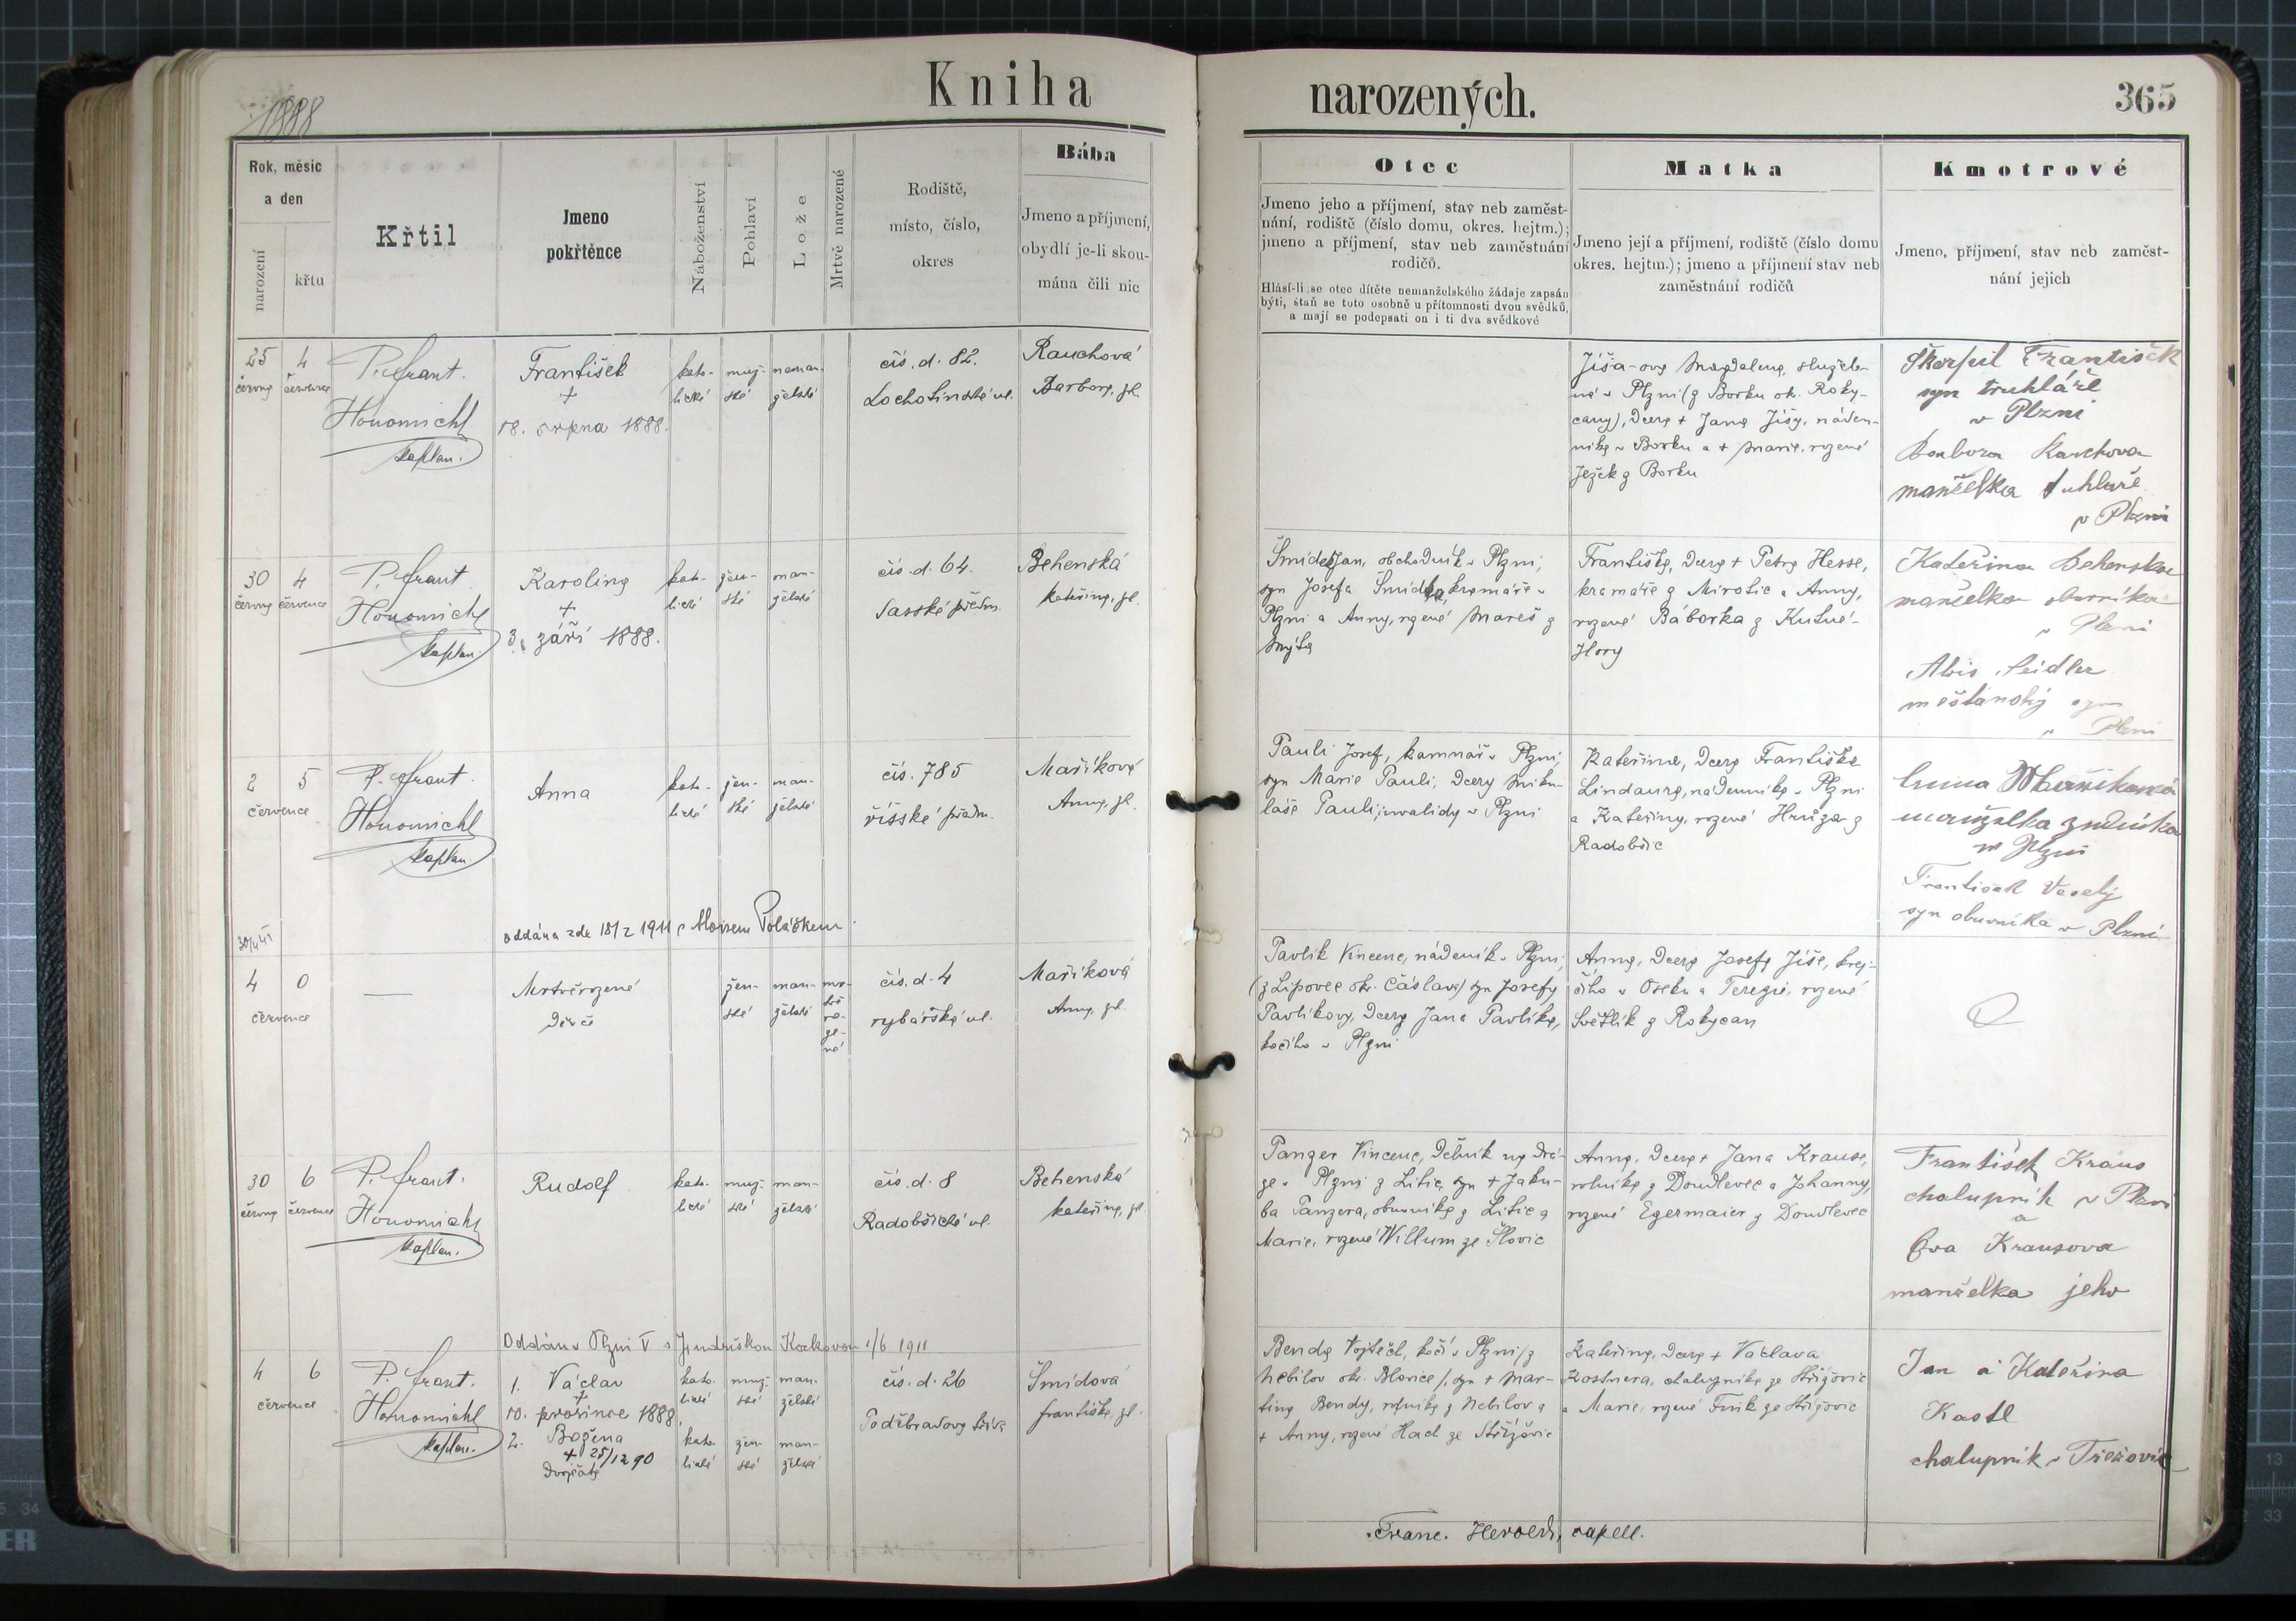 Kniha
narozených.
365
1888
Rok, měsíc
a den
narození
křtu
Křtil
Jmeno
pokřtěnce
Náboženství
Pohlaví
Lože
Mrtvě narozené
Rodiště,
místo, číslo,
okres
Bába
Jmeno a příjmení,
obydlí je-li skou-
mána čili nic
Otec
Jmeno jeho a příjmení, stav neb zaměst-
nání, rodiště (číslo domu, okres. hejtm.);
jmeno a příjmení, stav neb zaměstnání
rodičů.
Hlásí-li se otec dítěte nemanželského žádaje zapsán
býti, staň se toto osobně u přítomnosti dvou svědků,
a mají se podepsati on i ti dva svědkové
Matka
Jmeno její a příjmení, rodiště (číslo domu
okres. hejtm.); jmeno a příjmení stav neb
zaměstnání rodičů
Kmotrové
Jmeno, příjmení, stav neb zaměst-
nání jejich
25 června
4 července
P. Frant.
Honomichl
kaplan.
František
+
18. srpna 1888.
kato-
lické
muž-
ské
neman-
želské
čís. d. 82.
Lochotínské ul.
Rauchová
Barbora, zk.
Jíša-ova Magdalena, služeb-
ná v Plzni (z Borku ok. Roky-
cany), dcera + Jana Jíšy, náden-
níka v Borku a + Marie, rozené
Ježek z Borku
Škorpil František
syn truhláře
v Plzni
Barbora
manželka truhláře
v Plzni
30 června
4 července
P. Frant.
Honomichl
kaplan.
Karolina
+
3. září 1888.
kato-
lické
žen-
ské
man-
želské
čís. d. 64.
Saské předm.
Behenská
Kateřina, zk.
Šmídl Jan, obchodník v Plzni,
syn Josefa Šmídla, kramáře v
Plzni a Anny, rozené Mareš z
Mýta
Františka, dcera + Petra Hesse,
kramáře z Mirotic a Anny,
rozené Báborka z Kutné-
Hory
Kateřina Behenska
manželka obuvníka
v Plzni
Alois Seidler
měšťanský syn
v Plzni
2 5
července
P. Frant.
Honomichl
kaplan
Anna
kato-
lické
žen-
ské
man-
želské
čís. 785
říšské předm.
Maříková
Anna, zk.
Pauli Josef, kamnář v Plzni,
syn Marie Pauli, dcery Miku-
láše Pauli, invalidy v Plzni
Kateřina, dcera Františka
Lindaura, nádenníka v Plzni
a Kateřiny, rozené Hrůza z
Radobčic
Anna Mařiková
manželka zedníka
v Plzni
František Veselý
syn obuvníka v Plzni
oddána zde 18/2 1911 s Aloisem Poláčkem
4 0
července
—
Mrtvěrozené
děvče
žen-
ské
man-
želské
mr-
tvě
ro-
ze-
né
čís. d. 4
rybářské ul.
Maříková
Anna, zk.
Pavlík Vincenc, nádeník v Plzni,
(z Lipovec ok. Čáslav) syn Josefy
Pavlíkovy, dcery Jana Pavlíka,
kočího v Plzni
Anna, dcera Josefa Jíše, krej-
čího v Oseku a Terezie, rozené
Světlík z Rokycan
30 června
6 července
P. Frant.
Honomichl
kaplan.
Rudolf
kato-
lické
muž-
ské
man-
želské
čís. d. 8
Radobčické ul.
Behenská
Kateřina, zk.
Panzer Vincenc, dělník na drá-
ze v Plzni z Litic, syn + Jaku-
ba Panzera, obuvníka z Litic a
Marie, rozené Willum ze Šlovic
Anna, dcera + Jana Krause,
rolníka z Doudlevec a Johanny,
rozené Egermaier z Doudlevec
František Kraus
chalupník v Plzni
a
Eva Krausova
manželka jeho
Oddán v Plzni V s Jindřiškou 1/6 1911
4 6
července
P. Frant.
Honomichl
kaplan.
1. Václav
+
10. prosince 1888
2. Božena
+ 25/12 90
Dvojčata
kato-
lické
muž-
ské
man-
želské
kato-
lické
žen-
ské
man-
želské
čís. d. 26
Poděbradova třída
Šmídová
Františka, zk.
Benda Vojtěch, kočí v Plzni (z
Nebílov ok. Blovice), syn + Mar-
tina Bendy, rolníka z Nebílov a
+ Anny, rozené Hach ze Střížovic
Kateřina, dcera + Václava
Kostnera, chalupníka ze Střížovic
a Marie, rozené Fink ze Střížovic
Jan a Kateřina
Kastl
chalupník v
Franc. Herold, capell.